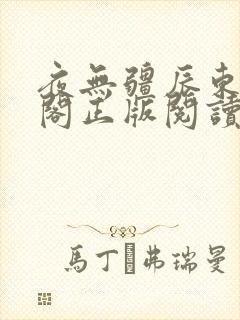 夜無疆辰東
閣正版閱讀
馬丁·弗瑞曼